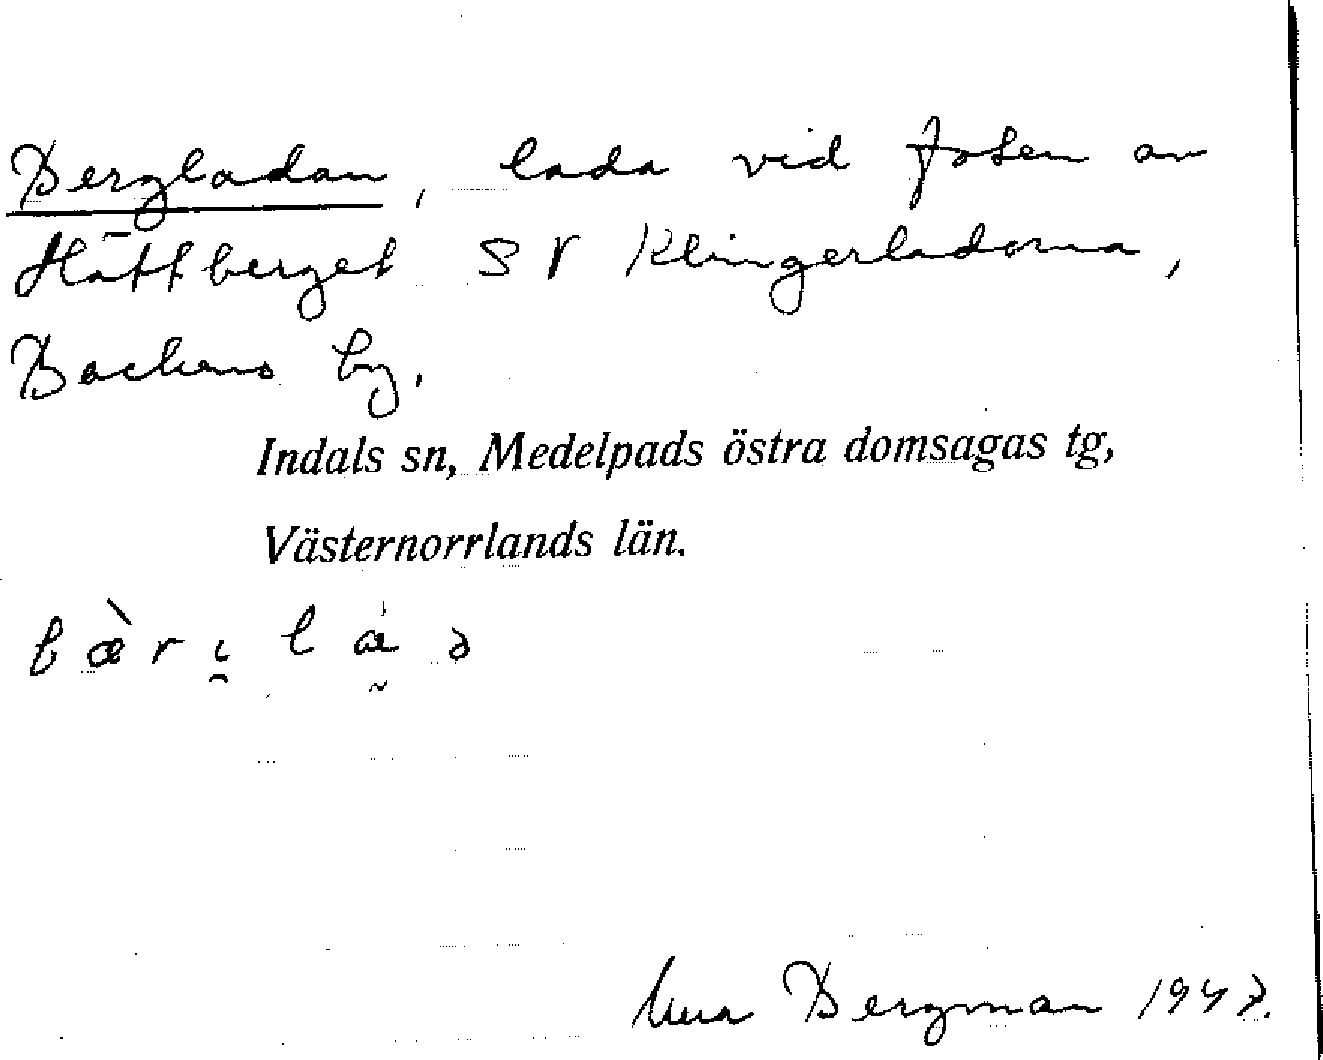 Bergladan, lada vid foten av
Hättberget SV Klingerladorna,
Backens by.
Indals sn, Medelpads östra domsagas tg,
Västernorrlands län.
Bergman 1947.